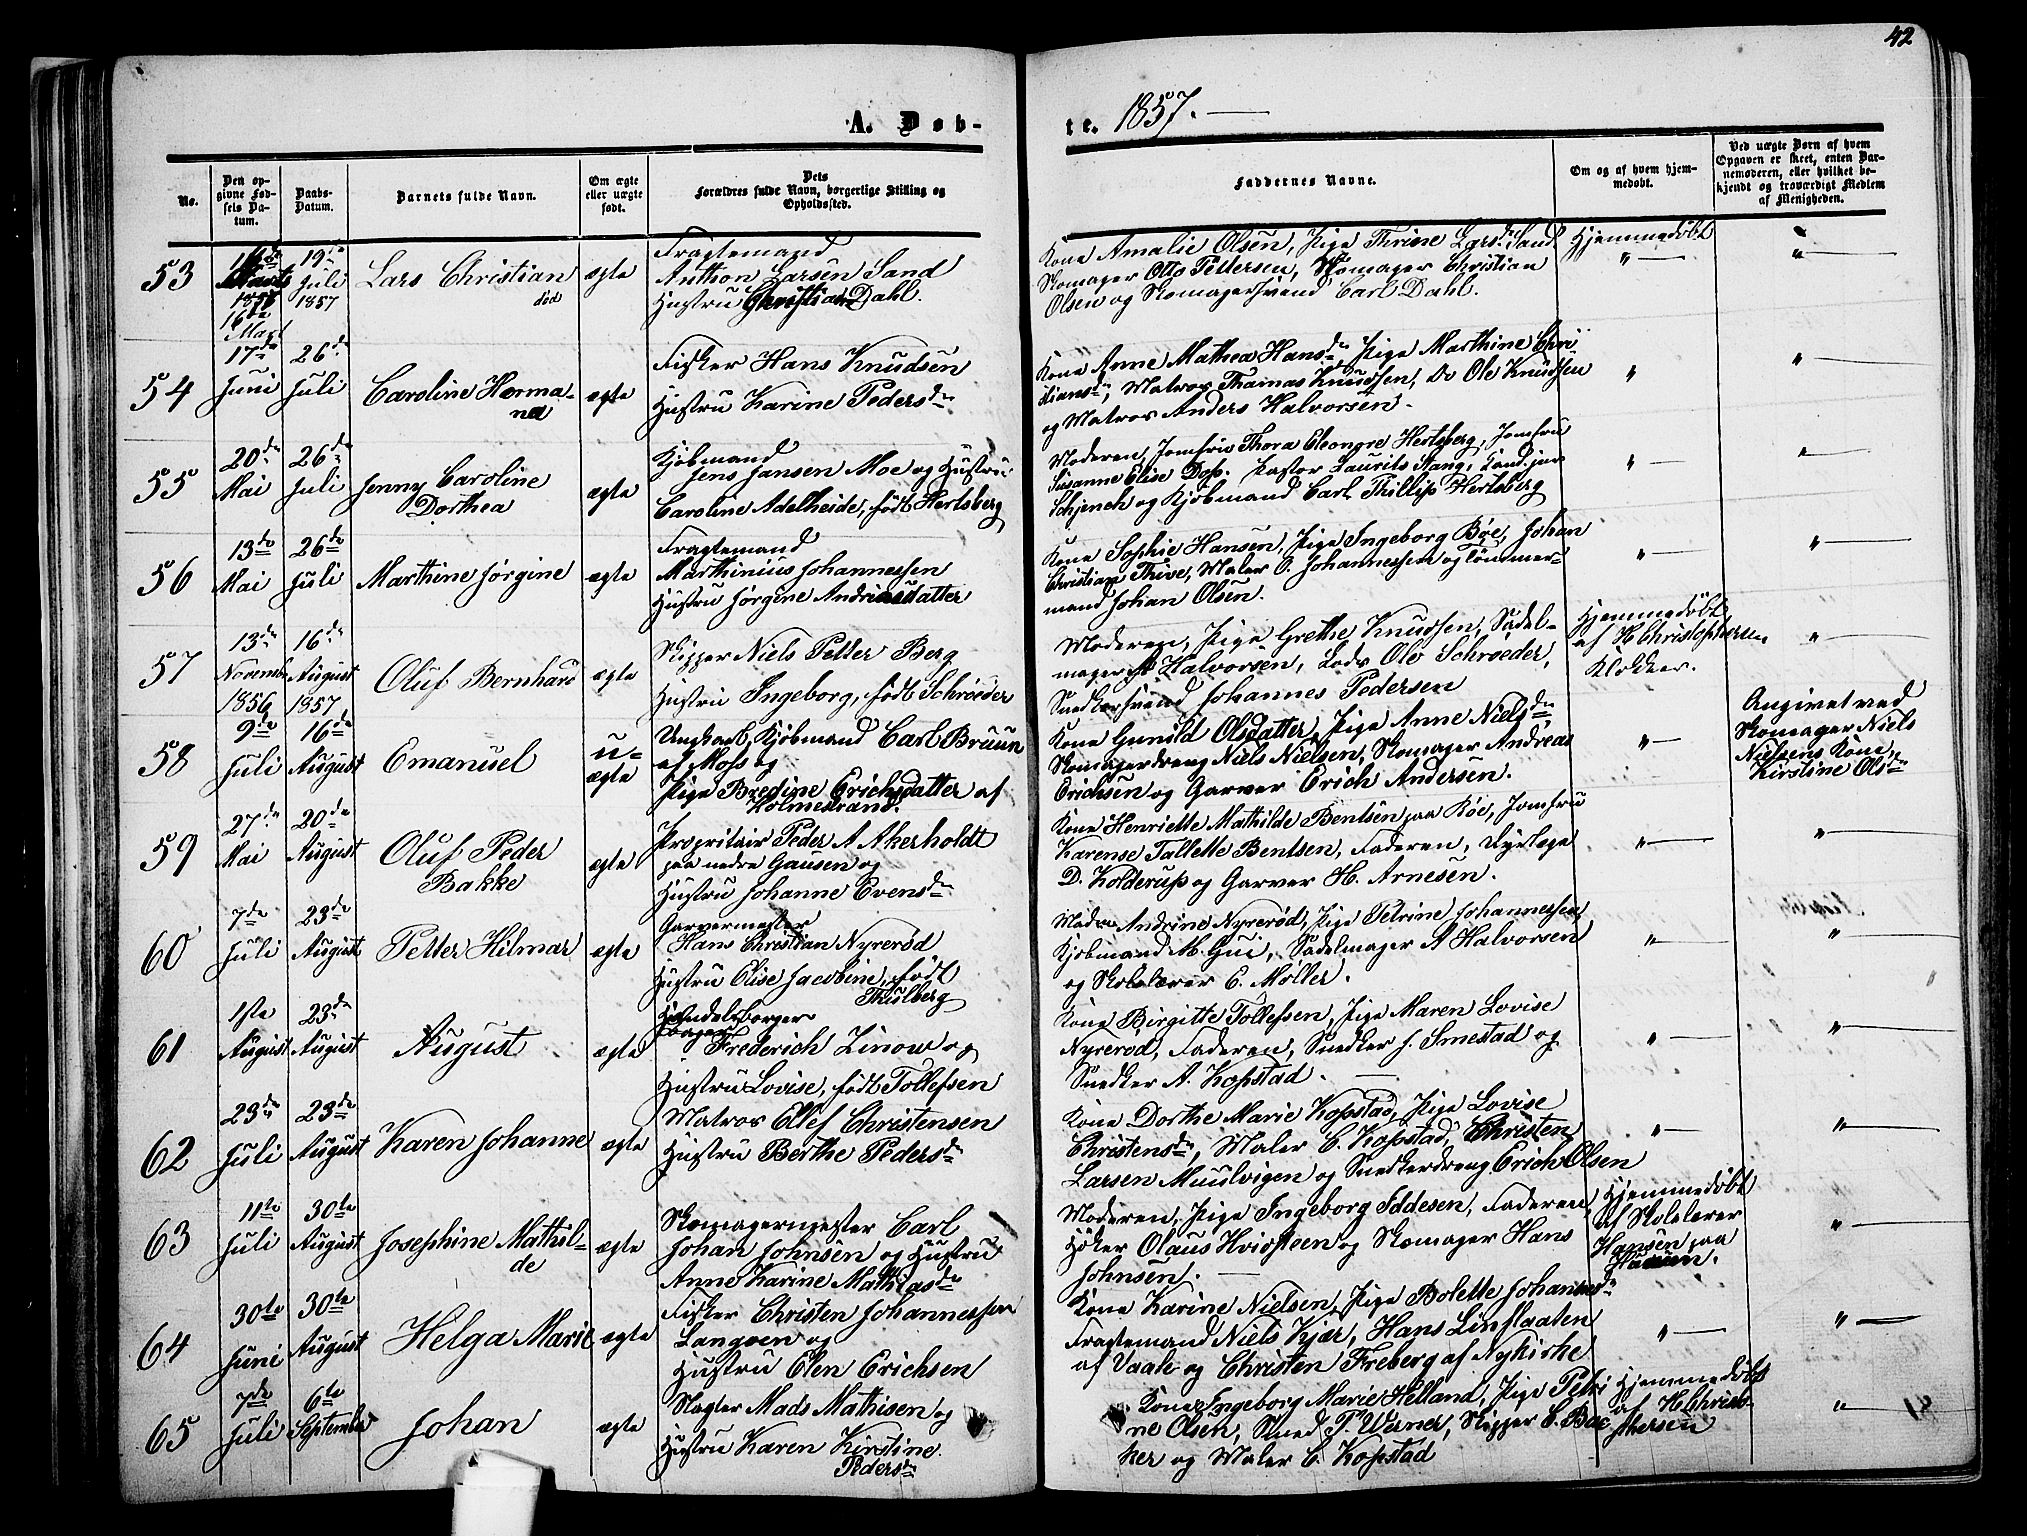 42
A. Døb-
te. 1857.
No.
Den op-
givne Fød-
sels Da-
tum.
Daabs-
Datum.
Barnets fulde Navn.
Om ægte
eller uægte
født.
Dets
Forældres fulde Navn, borgerlige Stilling og
Opholdssted.
Faddernes Navne.
Om og af hvem hjem-
medøbt.
Ved uægte Børn af hvem
Opgaven er skeet, enten Bar-
nemoderen, eller hvilket be-
kjendt og troværdigt Medlem
af Menigheden.
53
16de
Marts
1857
16de
Mart
19de
Juli
1857
Lars Christian
død
ægte
Fragtemand
Anthon Larsen Sand
Hustru Christiane Dahl.
Kone Amalie Olsen, Pige Thrine Larsdr Sand
Skomager Otto Pettersen, Skomager Christian
Olsen og Skomagersvend Carl Dahl.
Hjemmedøbt
"
"
54
17de
Juni
26de
Juli
Caroline Herma-
na
ægte
Fisker Hans Knudsen
Hustru Karine Pedersdr
Kone Anne Mathea Hansdr, Pige Marthine Chri
stiansdr, Matros Thomas Knudsen, Do Ole Knudsen
og Matros Anders Halvorsen.
"
"
55
20de
Mai
26de
Juli
Jenny Caroline
Dorthea
ægte
Kjøbmand
Jens Jansen Moe og Hustru
Caroline Adelheide, født Hertsberg
Moderen, Jomfru Thora Eleonore Hertsberg, Jomfru
Susanne Elise Dop. Pastor Laurits Stang, Kand. jur
Schjench og Kjøbmand Carl Phillip Hertsberg
"
"
56
13de
Mai
26de
Juli
Marthine Jørgine
ægte
Fragtemand
Marthinius Johannessen
Hustru Jørgine Andriasdatter
Kone Sophie Hansen, Pige Ingeborg Bøe, Johan
Christian Thive, Maler O. Johannessen og tømmer-
mand Johan Olsen.
"
"
57
13de
Novemb
1856
16de
August
1857
Oluf Bernhard
ægte
Skipper Niels Petter Berg
Hustru Ingeborg, født Schrøeder
Moderen, Pige Grethe Knudsen, Sadel-
mager A Halvorsen, Lods Ole Schroeder,
Snedkersvend Johannes Pedersen
Hjemmedøbt
af H Christophersen
Klokker.
"
58
9de
Juli
16de
August
Emanuel
u-
ægte
Ungkarl, Kjøbmand Carl Bruun
af Moss og
Pige Bredine Erichsdatter af
Holmestrand.
Kone Gunild Olsdatter, Pige Anne Nielsdr,
Skomagerdreng Niels Nielsen, Skomager Andreas
Erichsen og Garver Erich Andersen.
"
Angivet ved
Skomager Niels
Nielsens Kone
Kirstine Olsdr
59
27de
Mai
20de
August
Oluf Peder
Bakke
ægte
Propritair Peder A Akerholdt
paa nedre Gausen og
Hustru Johanne Evensdr
Kone Henriette Mathilde Bentsen paa Bøe, Jomfru
Karense Tallette Bentsen, Faderen, Dyrlæge
D. Kolderup og Garver H. Arnesen.
"
"
60
7de
Juli
23de
August
Petter Hilmar
ægte
Garvermester
Hans Christian Nyrerød
Hustru Elise Jacobine, født
Thulberg
Mdme Andrine Nyrerød, Pige Petrine Johannessen
Kjøbmand M. Gui, Sadelmager A Halvorsen
og Skolelærer E. Møller.
"
"
61
1ste
August
23de
August
August
ægte
Handelsborger
Frederich Linow og
Hustru Lovise, født Tollefsen
Kone Birgitte Tollefsen, Pige Maren Lovise
Nyrerød, Faderen, Snedker J. Smestad og
Snedker A. Kopstad.
"
"
62
23de
Juli
23de
August
Karen Johanne
ægte
Matros Ellef Christensen
Hustru Berthe Pedersdr
Kone Dorthe Marie Kopstad, Pige Lovise
Christensdr, Maler C. Kopstad, Christen
Larsen Muulvigen og Snedkerdreng Erich Olsen
"
"
63
11te
Juli
30te
August
Josephine Mathil-
de
ægte
Skomagermester Carl
Johan Johnsen og Hustru
Anne Karine Mathiasdr
Moderen, Pige Ingeborg Iddesen, Faderen,
Høker Olaus Hvidsteen og Skomager Hans
Johnsen.
Hjemmedøbt
af Skolelærer
Hansen paa
"
64
30te
Juni
30te
August
Helga Marie
ægte
Fisker Christen Johannessen
Langøen og
Hustru Elen Erichsen
Kone Karine Nielsen, Pige Bolette Johannesdr
Fragtemand Niels Kjær, Hans Linflaaten
af Vaale og Christen Freberg af Nykirke
"
"
65
7de
Juli
6te
September
Johan
ægte
Slagter Mads Mathisen og
Hustru Karen Kirstine
Pedersdr
Kone Ingeborg Marie Helland, Pige Petri
ne Olsen, Smed P. Werner, Skipper C. Bac
ker og Maler C. Kopstad
Hjemmedøbt
af H Christo-
phersen
"